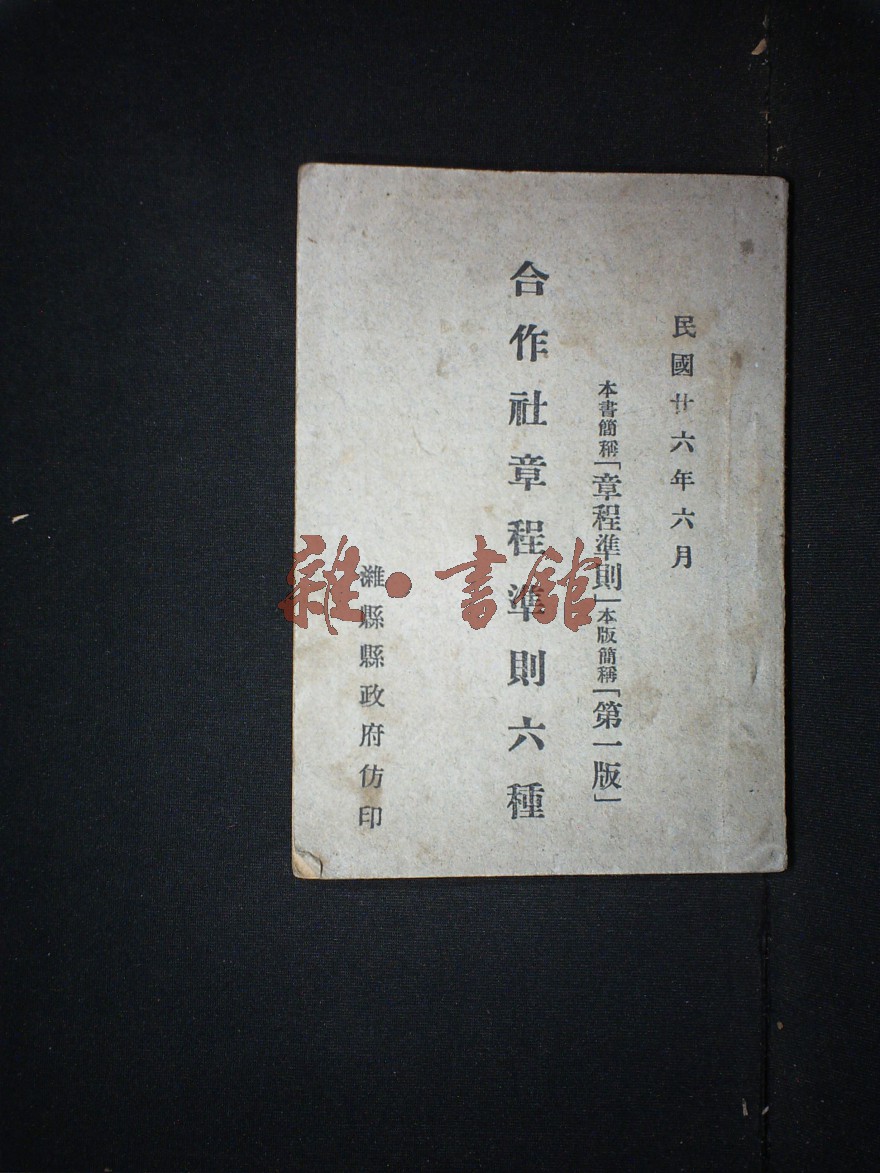 民國廿六年六月
本書簡稱「章程準則」本版簡稱「第一版」
合作社章程準則六種
濰縣縣政府仿印
雜·書館